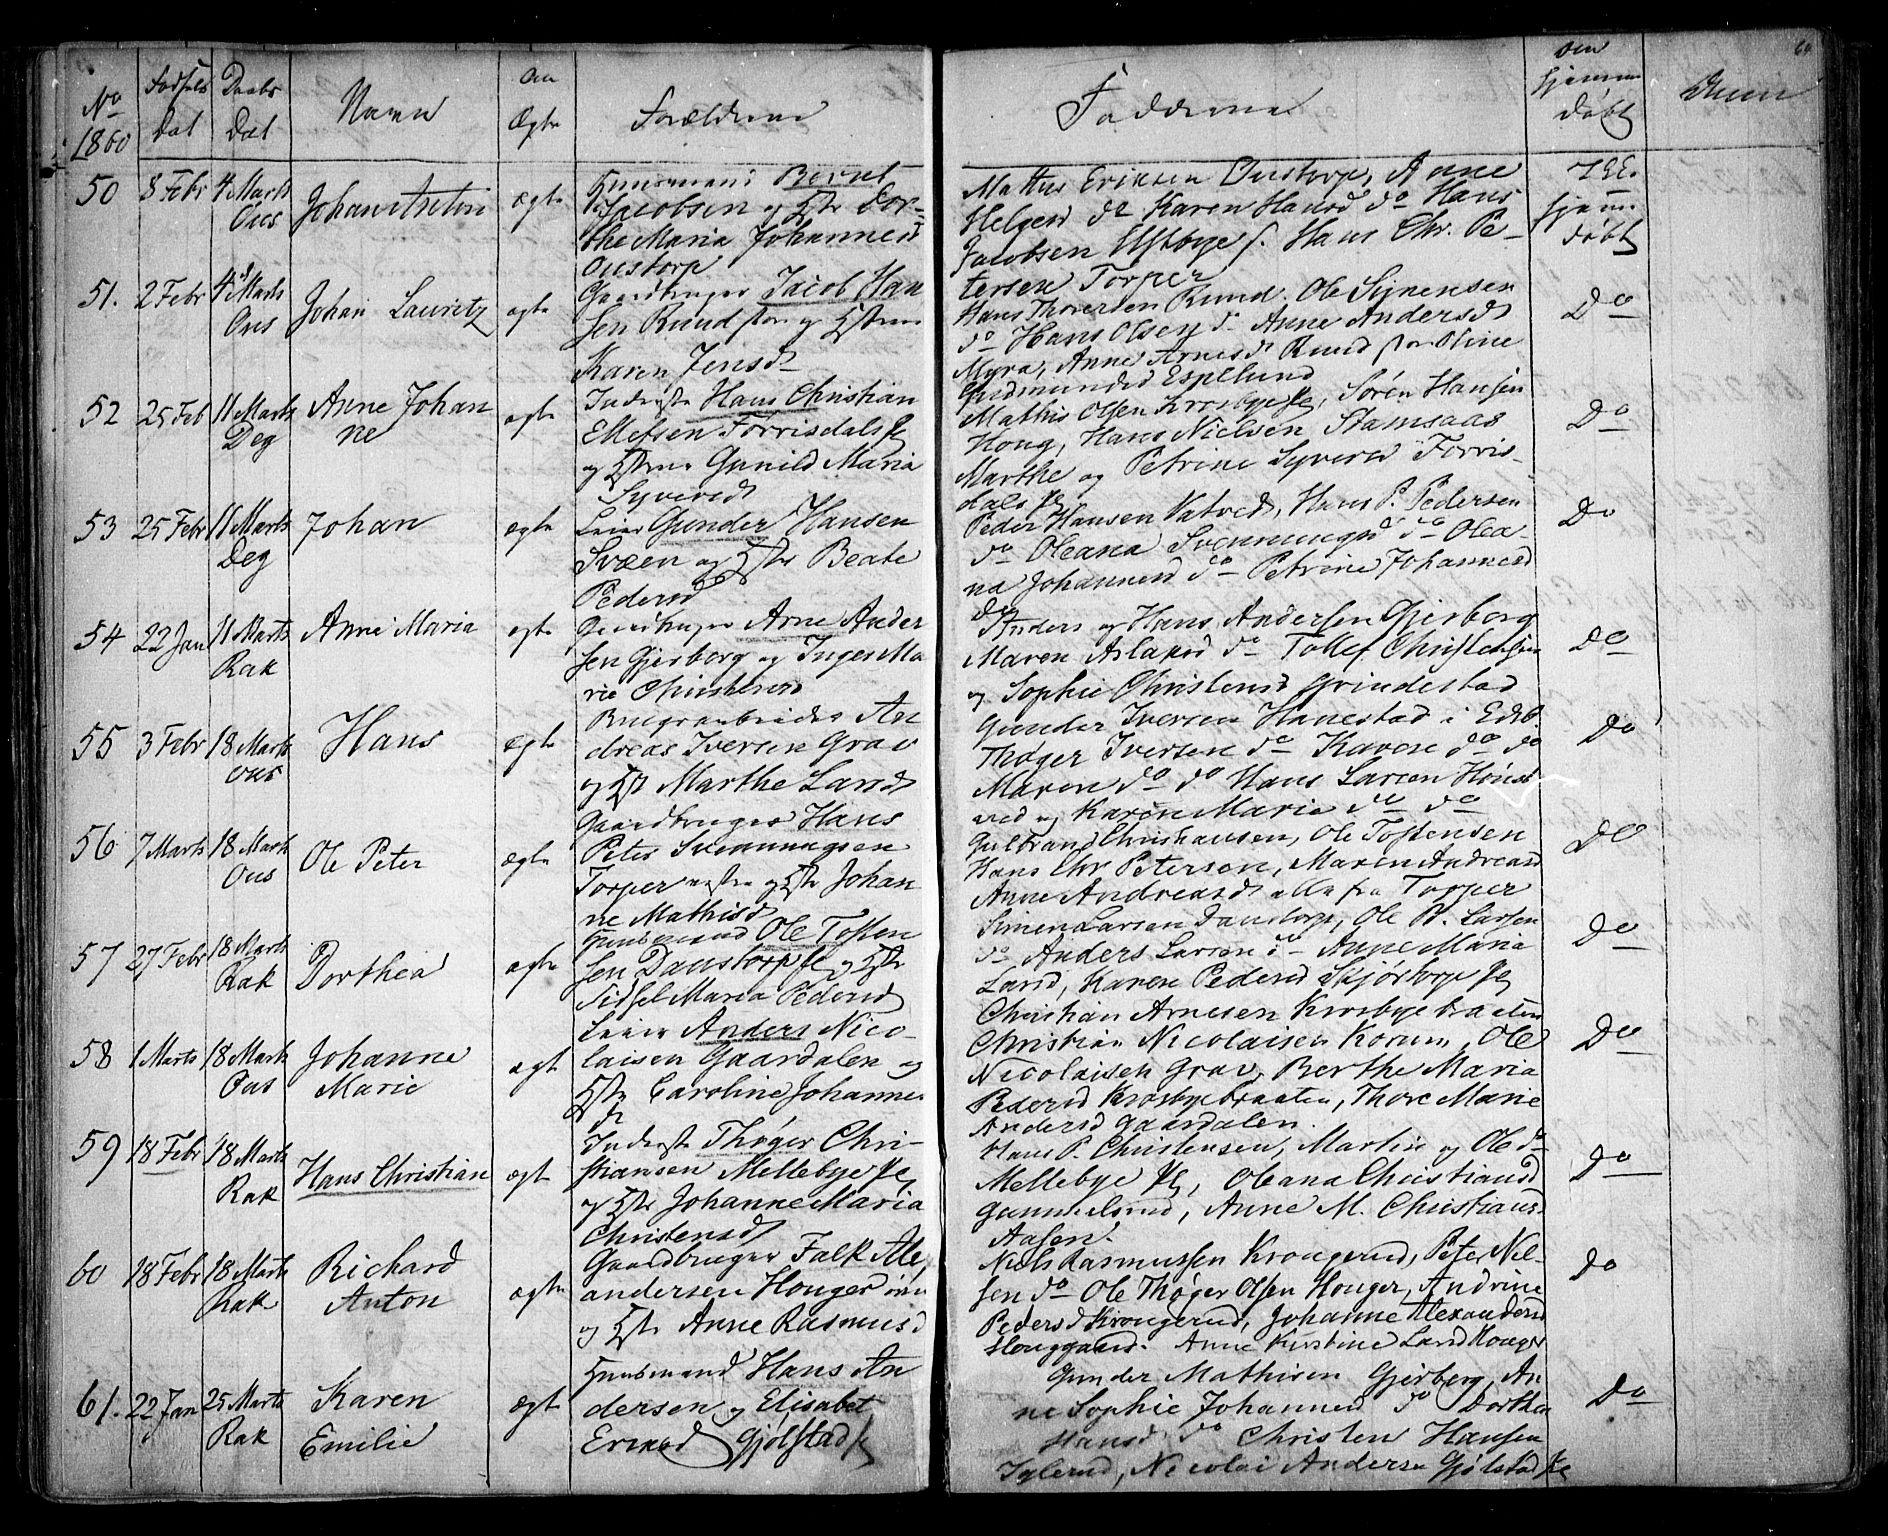 No 1860 | Fødsels Dat | Daabs Dat | Navn | om Ægte | Forældrene | Fadderne | om hjemme døbt | Anm
50 | 8 Febr | 4 Marts Ons | ægte
Huusmand Bernt
Jacobsen og Hstr Dor-
the Maria Johannesd
Onstorp
Mathis Eriksen Onstorp, Anne
Helgesd do Karen Hansd do Hans
Jacobsen Hans Chr. Pe-
tersen Torper
hjem-
døbt
51. | 2 Febr | 4 Marts Ons | Johan Lauritz | ægte
Gaardbruger Jacob Han
sen Rund og Hstru
Karen Jensd
Hans Thoresen Rund. Ole Syvensen
do Hans Olsen do Anne Andersd
Myra, Anne Arnesd Rund Oline
Gudmundsd Espelund
Do
52 | 25 Feb | 11 Marts Deg | Anne Johan
ne | ægte
Inderste Hans Christian
Ellefsen Torrisdal
og Hstru Gunild Maria
Syversd
Mathis Olsen Krosbye, Søren Hansen
Houg, Hans Nielsen Stamsaas
Marthe og Petrine Syversd Torris-
dal
Do
53 | 25 Febr | 11 Marts Deg | Johan | ægte
Leier Gunder Hansen
Svæen og Hstr Beate
Pedersd
Peder Hansen Vatvedt, Hans P. Pedersen
do Oleana Svenningsd do Olea-
na Johannesd do Petrine Johannesd
do
Do
54 | 22 Jan | 11 Marts Rak | Anne Maria | ægte
Gaardbruger Arne Ander
sen Gjerborg og Inger Ma
rie Christensd
Anders og Hans Andersen Gjerborg
Maren Aslaksd do Tollef Christensen
og Sophie Christensd Grindestad
Do
55 | 3 Febr | 18 Marts Ons | Hans | ægte
An
dreas Iversen Grav
og Hst Marthe Larsd
Gunder Iversen Hanestad i Edsb
Thøger Iversen do Karen do do
Maren do do Hans Larsen Høns
ved og Karen Maria do do
Do
56 | 7 Marts | 18 Marts Ons | Ole Peter | ægte
Gaardbruger Hans
Peter Svenningsen
Torper og Hstr Johan
ne Mathisd
Gulbrand Christiansen, Ole Tostensen
Hans Chr Petersen, Maren Andreasd
Anne Andreasd alle fra Torper
Do
57 | 27 Febr | 18 Marts Rak | Dorthea | ægte
Huusmand Ole Tosten
sen Danstorp og Hstr
Sidsel Maria Pedersd
Simen Larsen Danstorp, Ole P. Larsen
do Anders Larsen do Anne Maria
Larsd, Karen Pedersd Skjørtorp
Christian Arnesen Krosbyebraaten
Do
58 | 1 Marts | 18 Marts Ons | Johanne
Marie | ægte
Leier Anders Nico-
laisen Gaardalen og
Hstr Caroline Johannes
d
Christian Nicolaisen Korum, Ole
Nicolaisen Grav, Berthe Maria
Pedersd Krosbyebraaten, Thore Marie
Andersd Gaardalen.
Do
59 | 18 Febr | 18 Marts Rak | Hans Christian | ægte
Inderste Thøger Chri-
stiansen Mellebye
og Hstr Johanne Maria
Christensd
Hans P. Christensen, Martin og Ole do
Mellebye, Oleana Christiansd
Gunnelsrud, Anne M. Christians.
Aasen.
Do
60 | 18 Febr | 18 Marts Rak | Richard
Anton | ægte
Gaardbruger Falk Alex
andersen Houger
og Hstr Anne Rasmusd
Niels Rasmussen Krongerud, Peter Niel-
sen do Ole Thøger Olsen Houger, Andrine
Pedersd Krongerud, Johanne Alexandersd
Houggaard. Anne Kirstine Larsd Houger
Do
61. | 22 Jan | 25 Marts Rak | Karen
Emilie | ægte
Huusmand Hans An
dersen og Elisabet
Eriksd Gjølstad
Gunder Mathisen Gjerberg, An
ne Sophie Johannesd do Dorthea
Hansd do Christen Hansen
Nicolai Andersen Gjølstad
Do